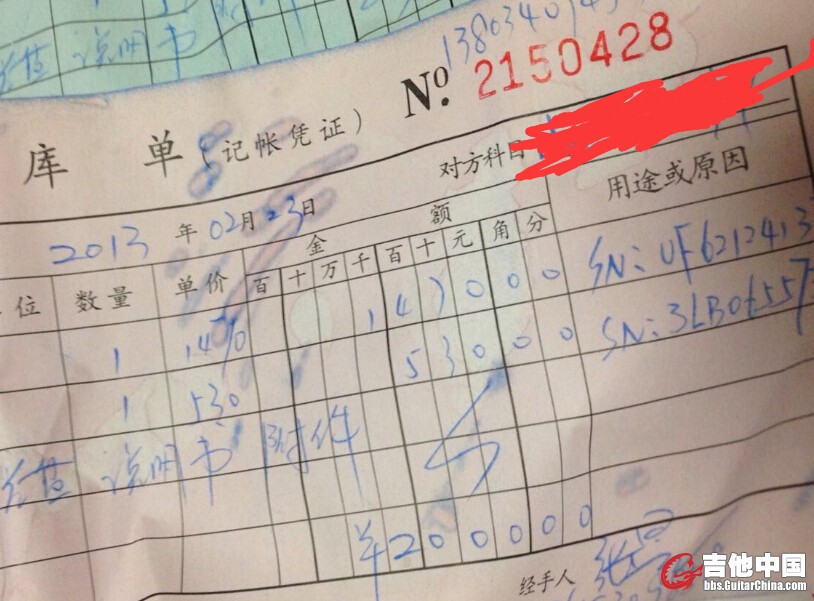 说明书
13803401
库 单（记帐凭证） №. 2150428
对方科目
2013 年 02 月 23 日
位 数量 单价 金 额 用途或原因
百 十 万 千 百 十 元 角 分
1 1470 1 4 7 0 0 0 SN: UF6212413
1 530 5 3 0 0 0 SN: 3LB06557
说明书 附件
¥ 2 0 0 0 0 0
经手人 张
吉他中国
bbs.GuitarChina.com